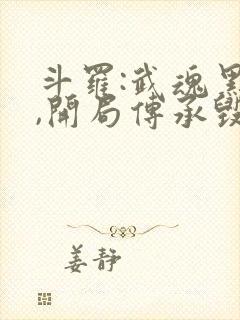 斗羅:武魂黑
,開局傳承毀
姜靜